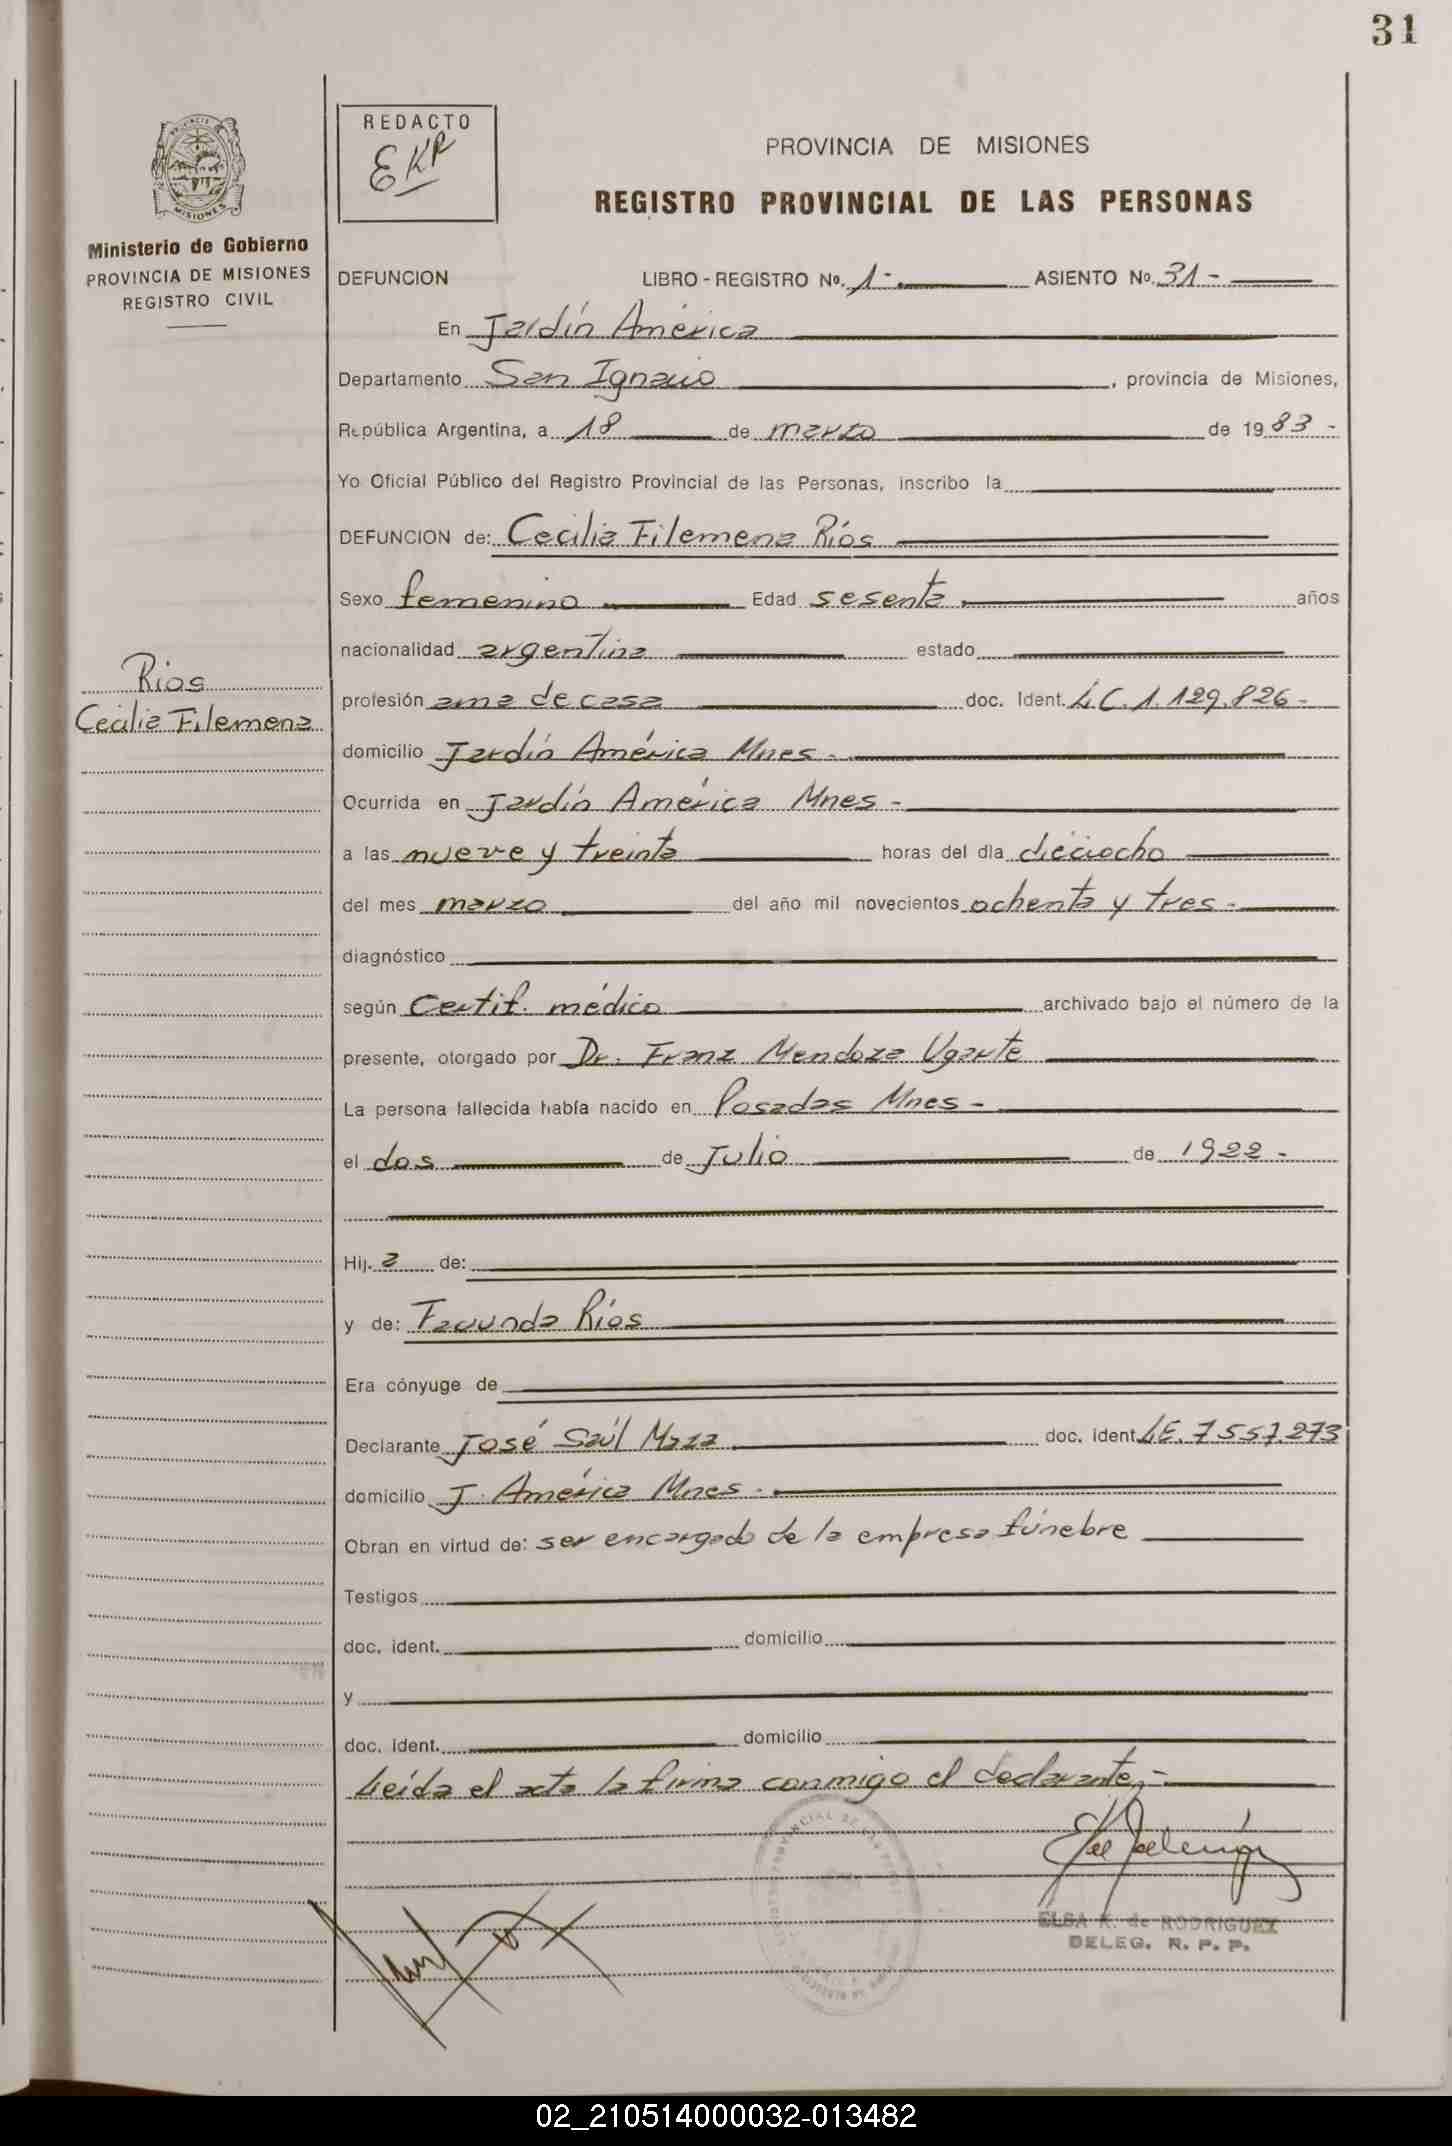 31
REDACTO
EKR
PROVINCIA DE MISIONES
REGISTRO PROVINCIAL DE LAS PERSONAS
MISIONES
Ministerio de Gobierno
PROVINCIA DE MISIONES
REGISTRO CIVIL
DEFUNCION LIBRO - REGISTRO No. 1- ASIENTO No. 31-
En Jardín América
Departamento San Ignacio, provincia de Misiones,
República Argentina, a 18 de marzo de 1983-
Yo Oficial Público del Registro Provincial de las Personas, inscribo la
DEFUNCION de: Cecilia Filemena Ríos
Sexo femenino Edad sesenta años
nacionalidad argentina estado
Ríos
Cecilia Filemena
profesión ama de casa doc. Ident. L.C. 1.129.826-
domicilio Jardín América Mnes-
Ocurrida en Jardín América Mnes-
a las nueve y treinta horas del día dieciocho
del mes marzo del año mil novecientos ochenta y tres-
diagnóstico
según Certif. médico archivado bajo el número de la
presente, otorgado por Dr. Franz Mendoza Ugarte
La persona fallecida había nacido en Posadas Mnes-
el dos de Julio de 1922-
Hij. a de:
y de: Facunda Ríos
Era cónyuge de
Declarante José Saúl Maza doc. ident. L.E. 7557.273
domicilio J. América Mnes-
Obran en virtud de: ser encargado de la empresa fúnebre
Testigos
doc. ident. domicilio
y
doc. ident. domicilio
Leída el acta la firma conmigo el declarante,-
ELSA K. de RODRIGUEZ
DELEG. R. P. P.
02_210514000032-013482